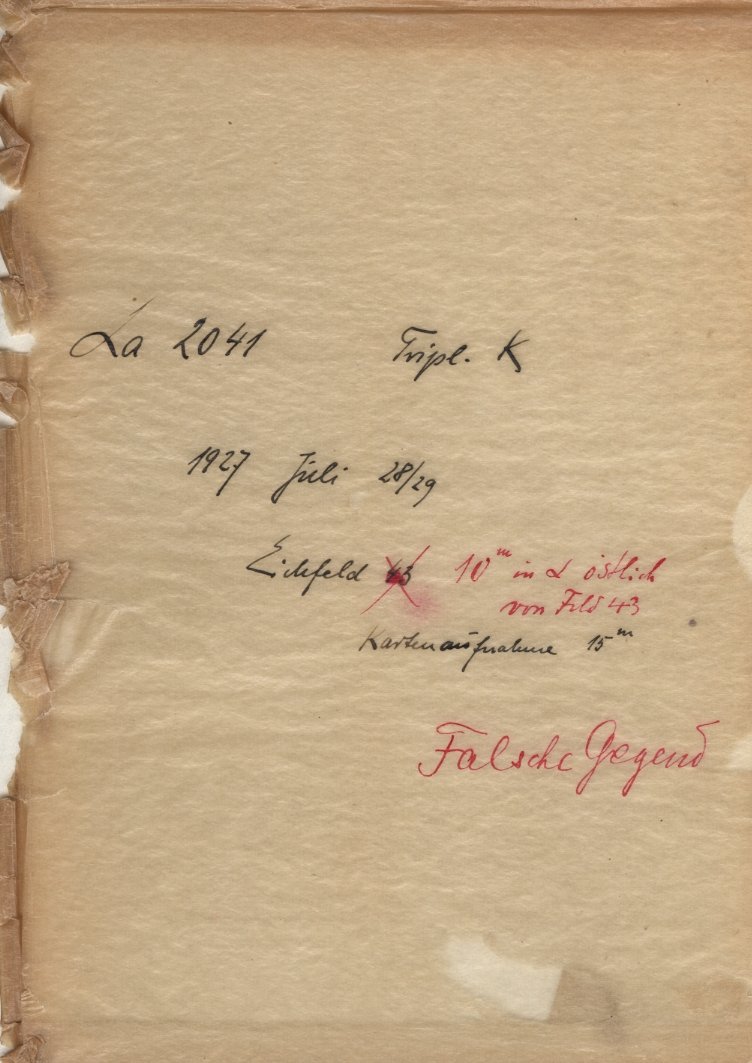 La 2041 Tripl. K
1927 Juli 28/29
Eichfeld 43 10ᵐ in α östlich
von Feld 43
Kartenaufnahme 15ᵐ
Falsche Gegend